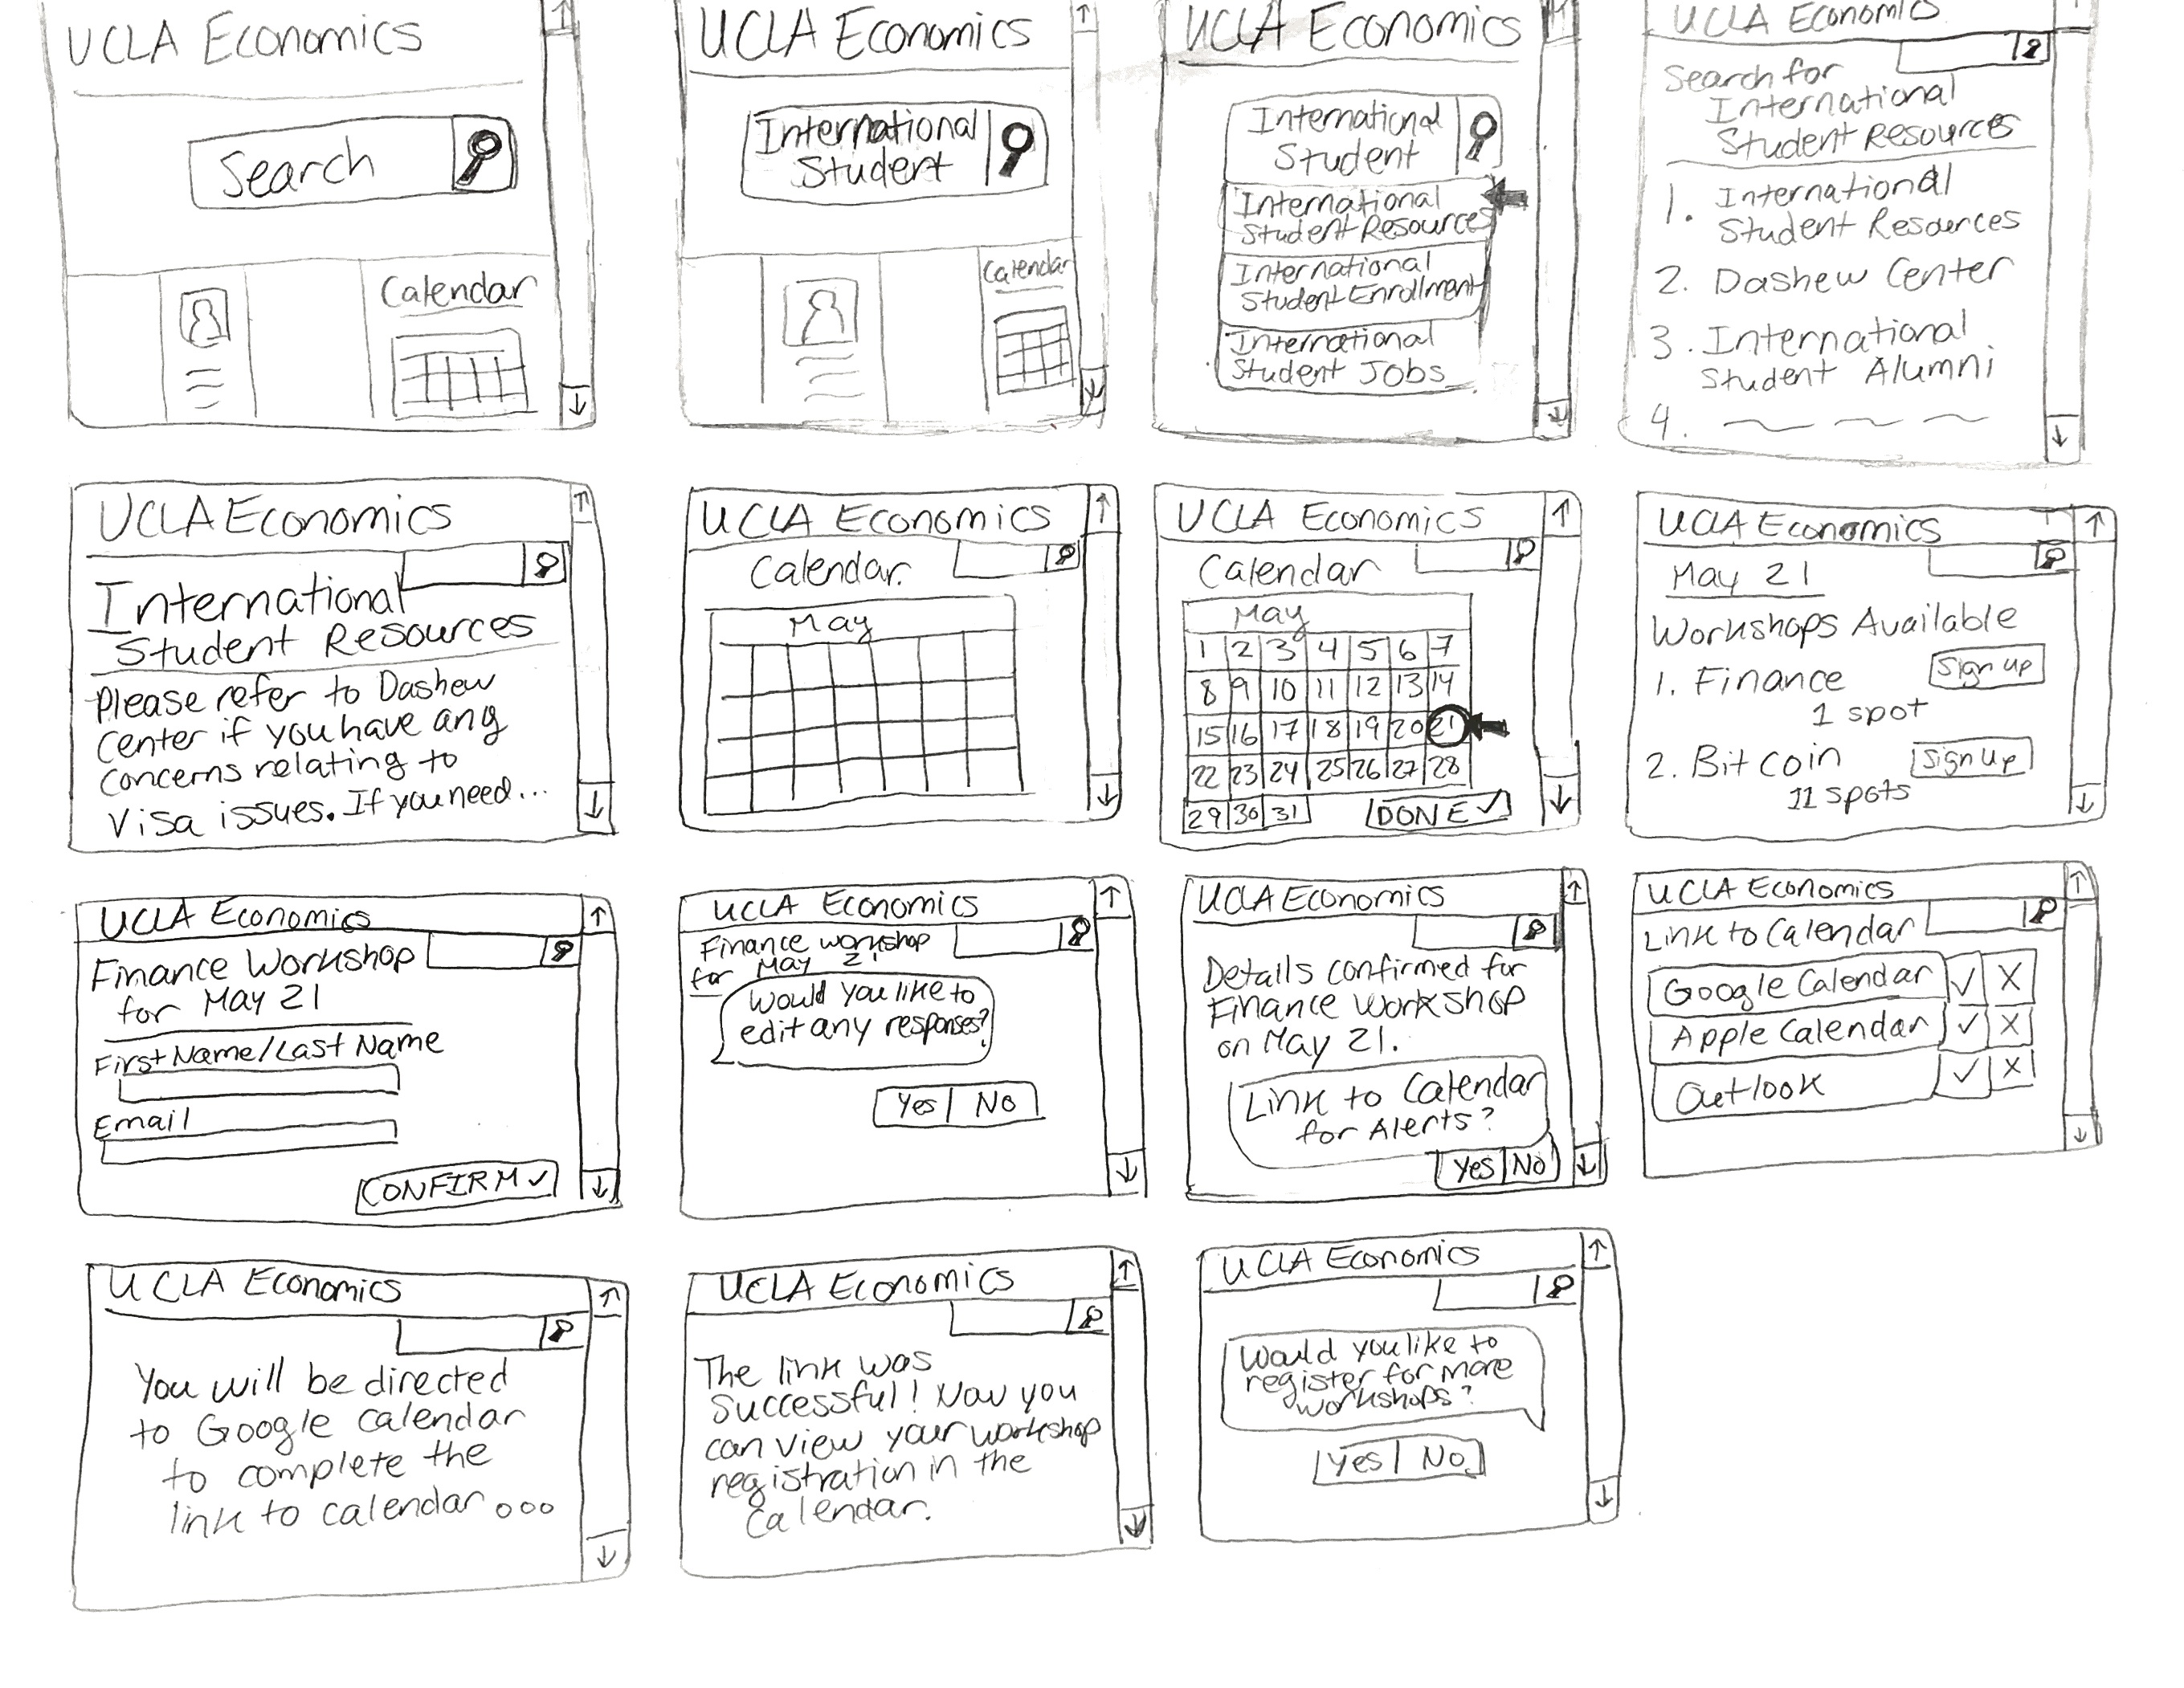 UCLA Economics
Search
Calendar
UCLA Economics
International
Student
Calendar
UCLA Economics
International
Student
International
Student Resources
International
Student Enrollment
International
Student Jobs
UCLA Economics
Search for
International
Student Resources
1. International
Student Resources
2. Dashew Center
3. International
Student Alumni
4.
UCLA Economics
International
Student Resources
Please refer to Dashew
Center if you have any
concerns relating to
Visa issues. If you need...
UCLA Economics
Calendar.
May
UCLA Economics
Calendar
May
1 2 3 4 5 6 7
8 9 10 11 12 13 14
15 16 17 18 19 20 21
22 23 24 25 26 27 28
29 30 31 DONE ✓
UCLA Economics
May 21
Workshops Available
1. Finance Sign up
1 spot
2. Bitcoin Sign Up
11 spots
UCLA Economics
Finance Workshop
for May 21
First Name/Last Name
Email
CONFIRM ✓
UCLA Economics
Finance workshop
for May 21
Would you like to
edit any responses?
Yes No
UCLA Economics
Details confirmed for
Finance Workshop
on May 21.
Link to Calendar
for Alerts?
Yes No
UCLA Economics
Link to Calendar
Google Calendar ✓ X
Apple Calendar ✓ X
Outlook ✓ X
UCLA Economics
You will be directed
to Google calendar
to complete the
link to calendar...
UCLA Economics
The link was
successful! Now you
can view your workshop
registration in the
Calendar.
UCLA Economics
Would you like to
register for more
workshops?
Yes No